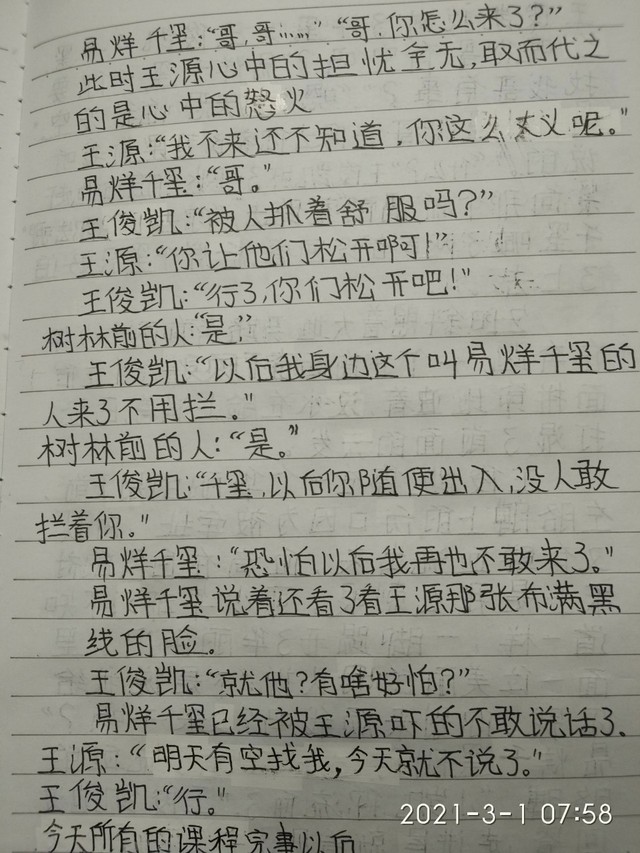 易烊千玺:“哥,哥……”“哥,你怎么来了?”
此时王源心中的担忧全无,取而代之
的是心中的怒火
王源:“我不来还不知道,你这么大义呢。”
易烊千玺:“哥。”
王俊凯:“被人抓着舒服吗?”
王源:“你让他们松开啊!”
王俊凯:“行了,你们松开吧!”
树林前的人:“是。”
王俊凯:“以后我身边这个叫易烊千玺的
人来了不用拦。”
树林前的人:“是。”
王俊凯:“千玺,以后你随便出入,没人敢
拦着你。”
易烊千玺:“恐怕以后我再也不敢来了。”
易烊千玺说着还看了看王源那张布满黑
线的脸。
王俊凯:“就他?有啥好怕?”
易烊千玺已经被王源吓的不敢说话了.
王源:“明天有空找我,今天就不说了。”
王俊凯:“行。”
今天所有的课程完事以后
2021-3-1 07:58